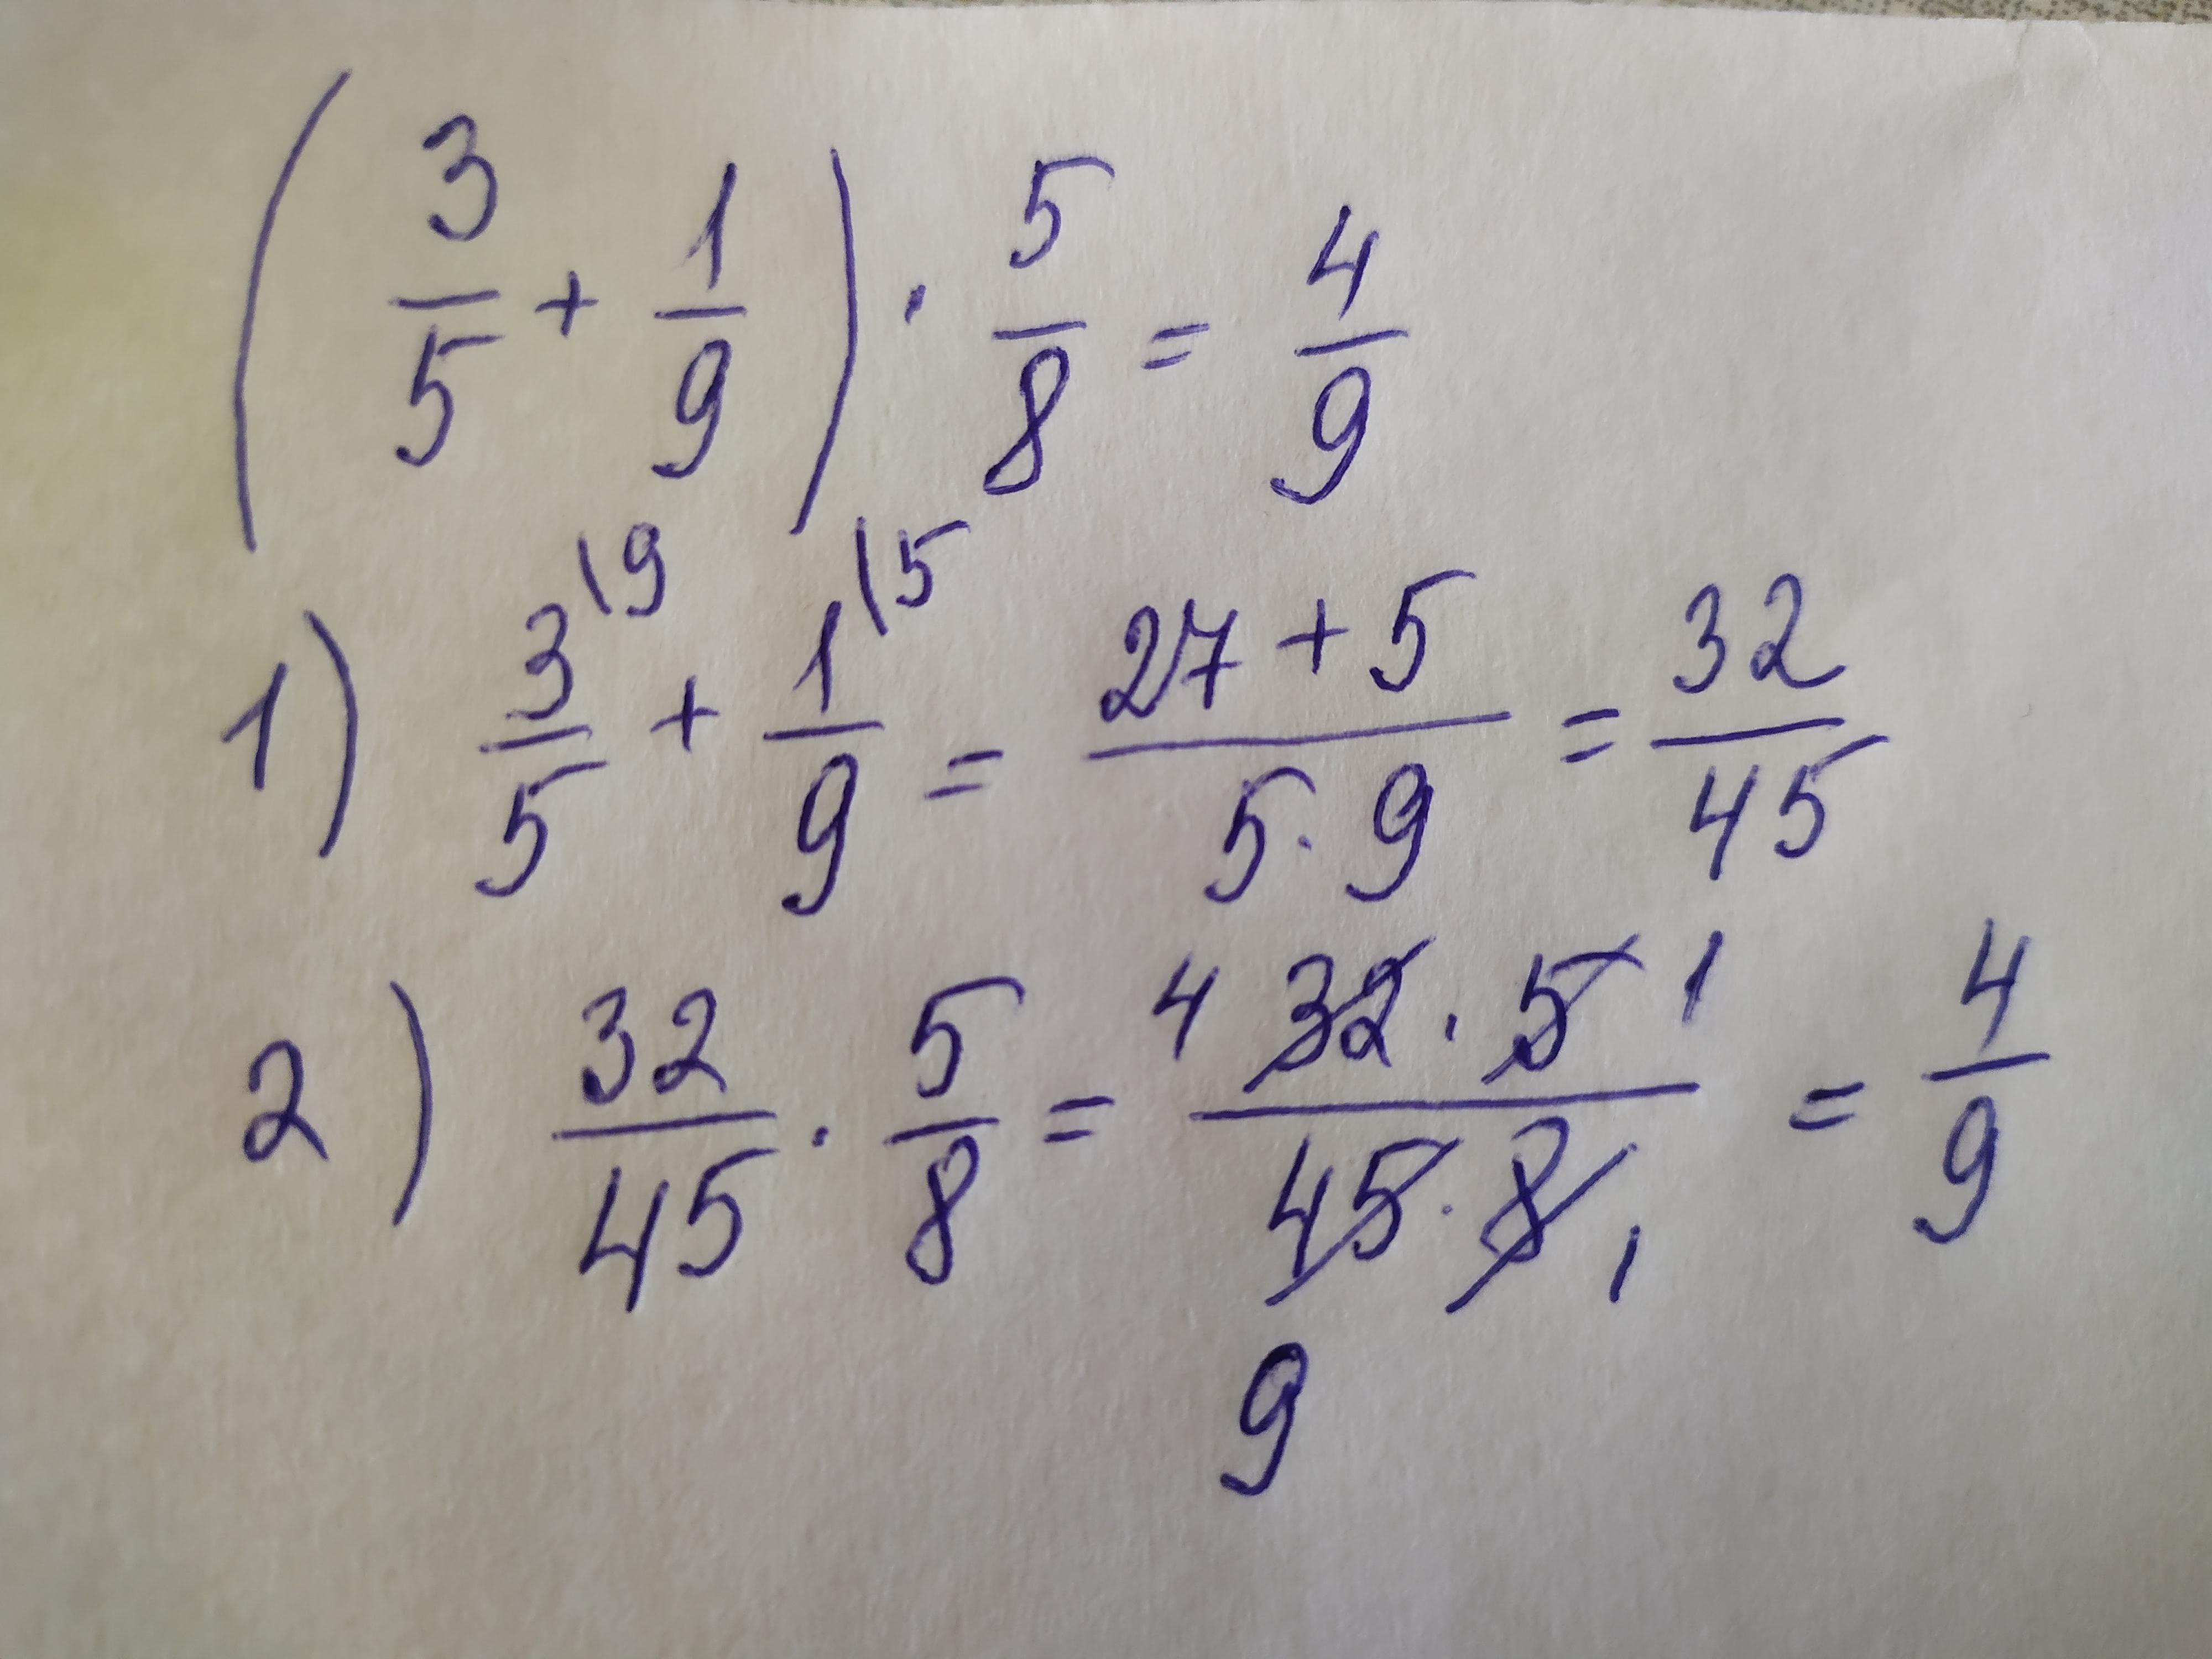 (3/5 + 1/9) · 5/8 = 4/9
1) 3\9/5 + 1\5/9 = 27+5/5·9 = 32/45
2) 32/45 · 5/8 = 4 32·5 1/45·8 1 = 4/9
9